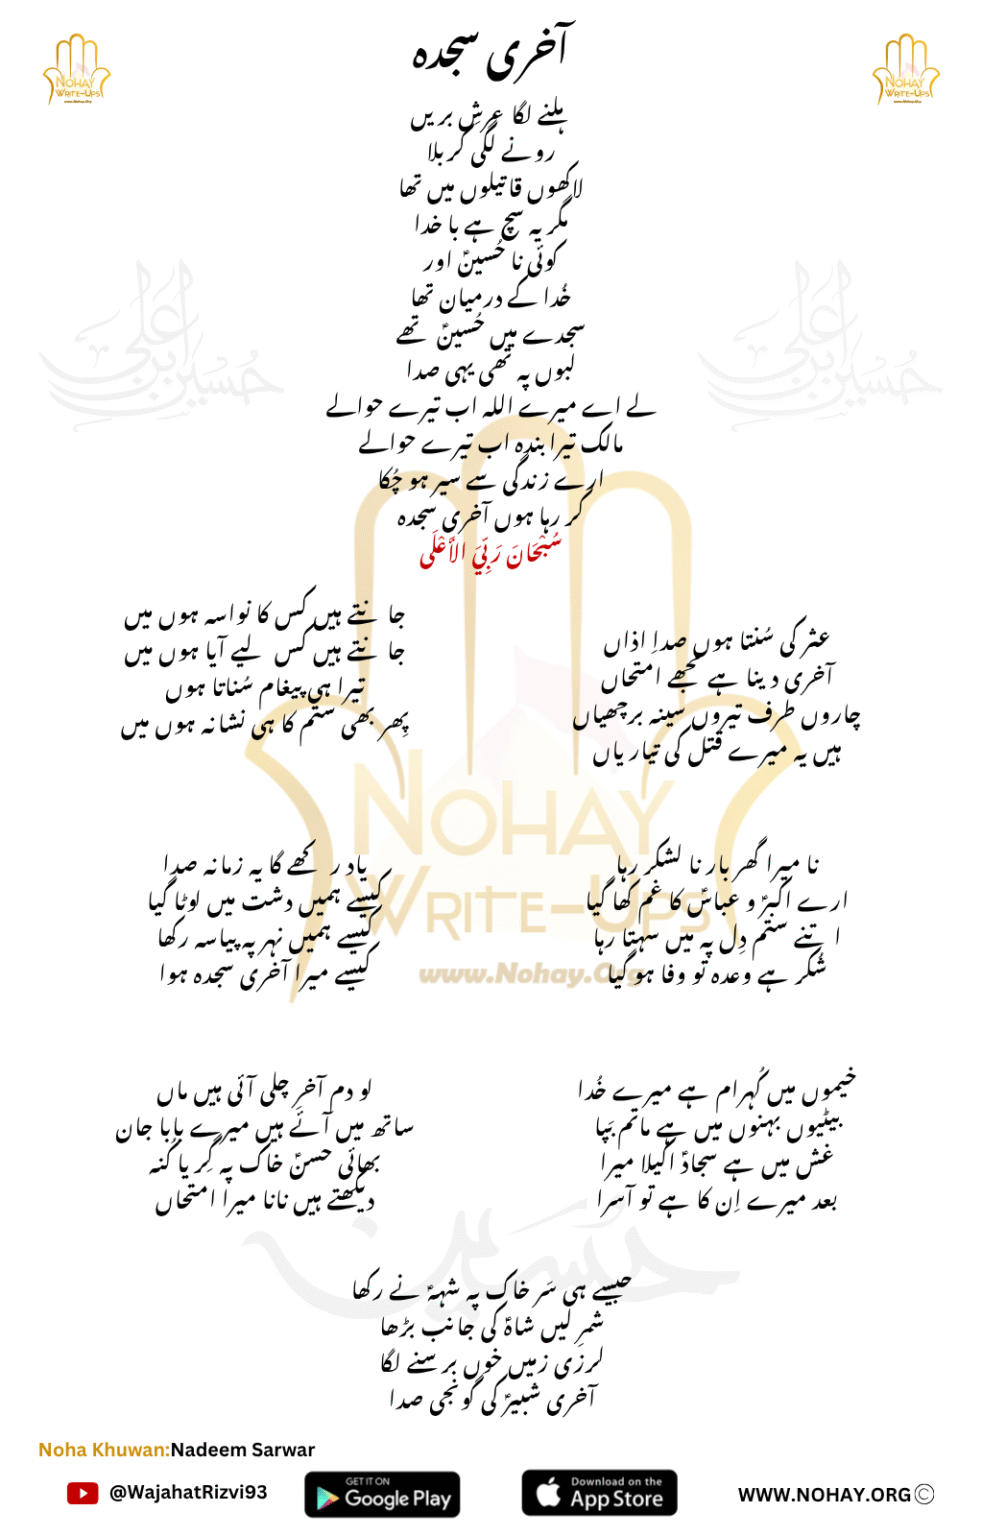 آخری سجدہ
NOHAY
WRITE-UPS
www.Nohay.Org
NOHAY
WRITE-UPS
www.Nohay.Org
ہلنے لگا عرشِ بریں
رونے لگی کربلا
لاکھوں قاتیلوں میں تھا
مگر یہ سچ ہے با خدا
کوئی نا حُسینؑ اور
خُدا کے درمیان تھا
سجدے میں حُسینؑ تھے
لبوں پہ تھی یہی صدا
لے اے میرے اللہ اب تیرے حوالے
مالک تیرا بندہ اب تیرے حوالے
ارے زندگی سے سیر ہو چُکا
کر رہا ہوں آخری سجدہ
سُبْحَانَ رَبِّيَ الأَعْلَى
عثر کی سُنتا ہوں صداِ اذاں
آخری دینا ہے مجھے امتحاں
چاروں طرف تیروں سینہ برچھیاں
ہیں یہ میرے قتل کی تیاریاں
جانتے ہیں کس کا نواسہ ہوں میں
جانتے ہیں کس لیے آیا ہوں میں
تیرا ہی پیغام سُناتا ہوں
پِھر بھی ستم کا ہی نشانہ ہوں میں
نا میرا گھر بار نا لشکر رہا
ارے اکبرؑ و عباسؑ کا غم کھا گیا
اتنے ستم دِل پہ میں سہتا رہا
شُکر ہے وعدہ تو وفا ہو گیا
یاد رکھے گا یہ زمانہ صدا
کیسے ہمیں دشت میں لوٹا گیا
کیسے ہمیں نہر پہ پیاسہ رکھا
کیسے میرا آخری سجدہ ہوا
NOHAY
WRITE-UPS
www.Nohay.Org
خیموں میں کُہرام ہے میرے خُدا
بیٹیوں بہنوں میں ہے ماتم بَپا
غش میں ہے سجادؑ اکیلا میرا
بعد میرے اِن کا ہے تو آسرا
لو دم آخرِ چلی آئی ہیں ماں
ساتھ میں آئے ہیں میرے بابا جان
بھائی حسنؑ خاک پہ گِر یا کُنہ
دیکھتے ہیں نانا میرا امتحاں
جیسے ہی سَر خاک پہ شہہؑ نے رکھا
شمرِ لیں شاہؑ کی جانب بڑھا
لرزی زمیں خوں برسنے لگا
آخری شبیرؑ کی گونجی صدا
Noha Khuwan:Nadeem Sarwar
@WajahatRizvi93
GET IT ON
Google Play
Download on the
App Store
WWW.NOHAY.ORG©